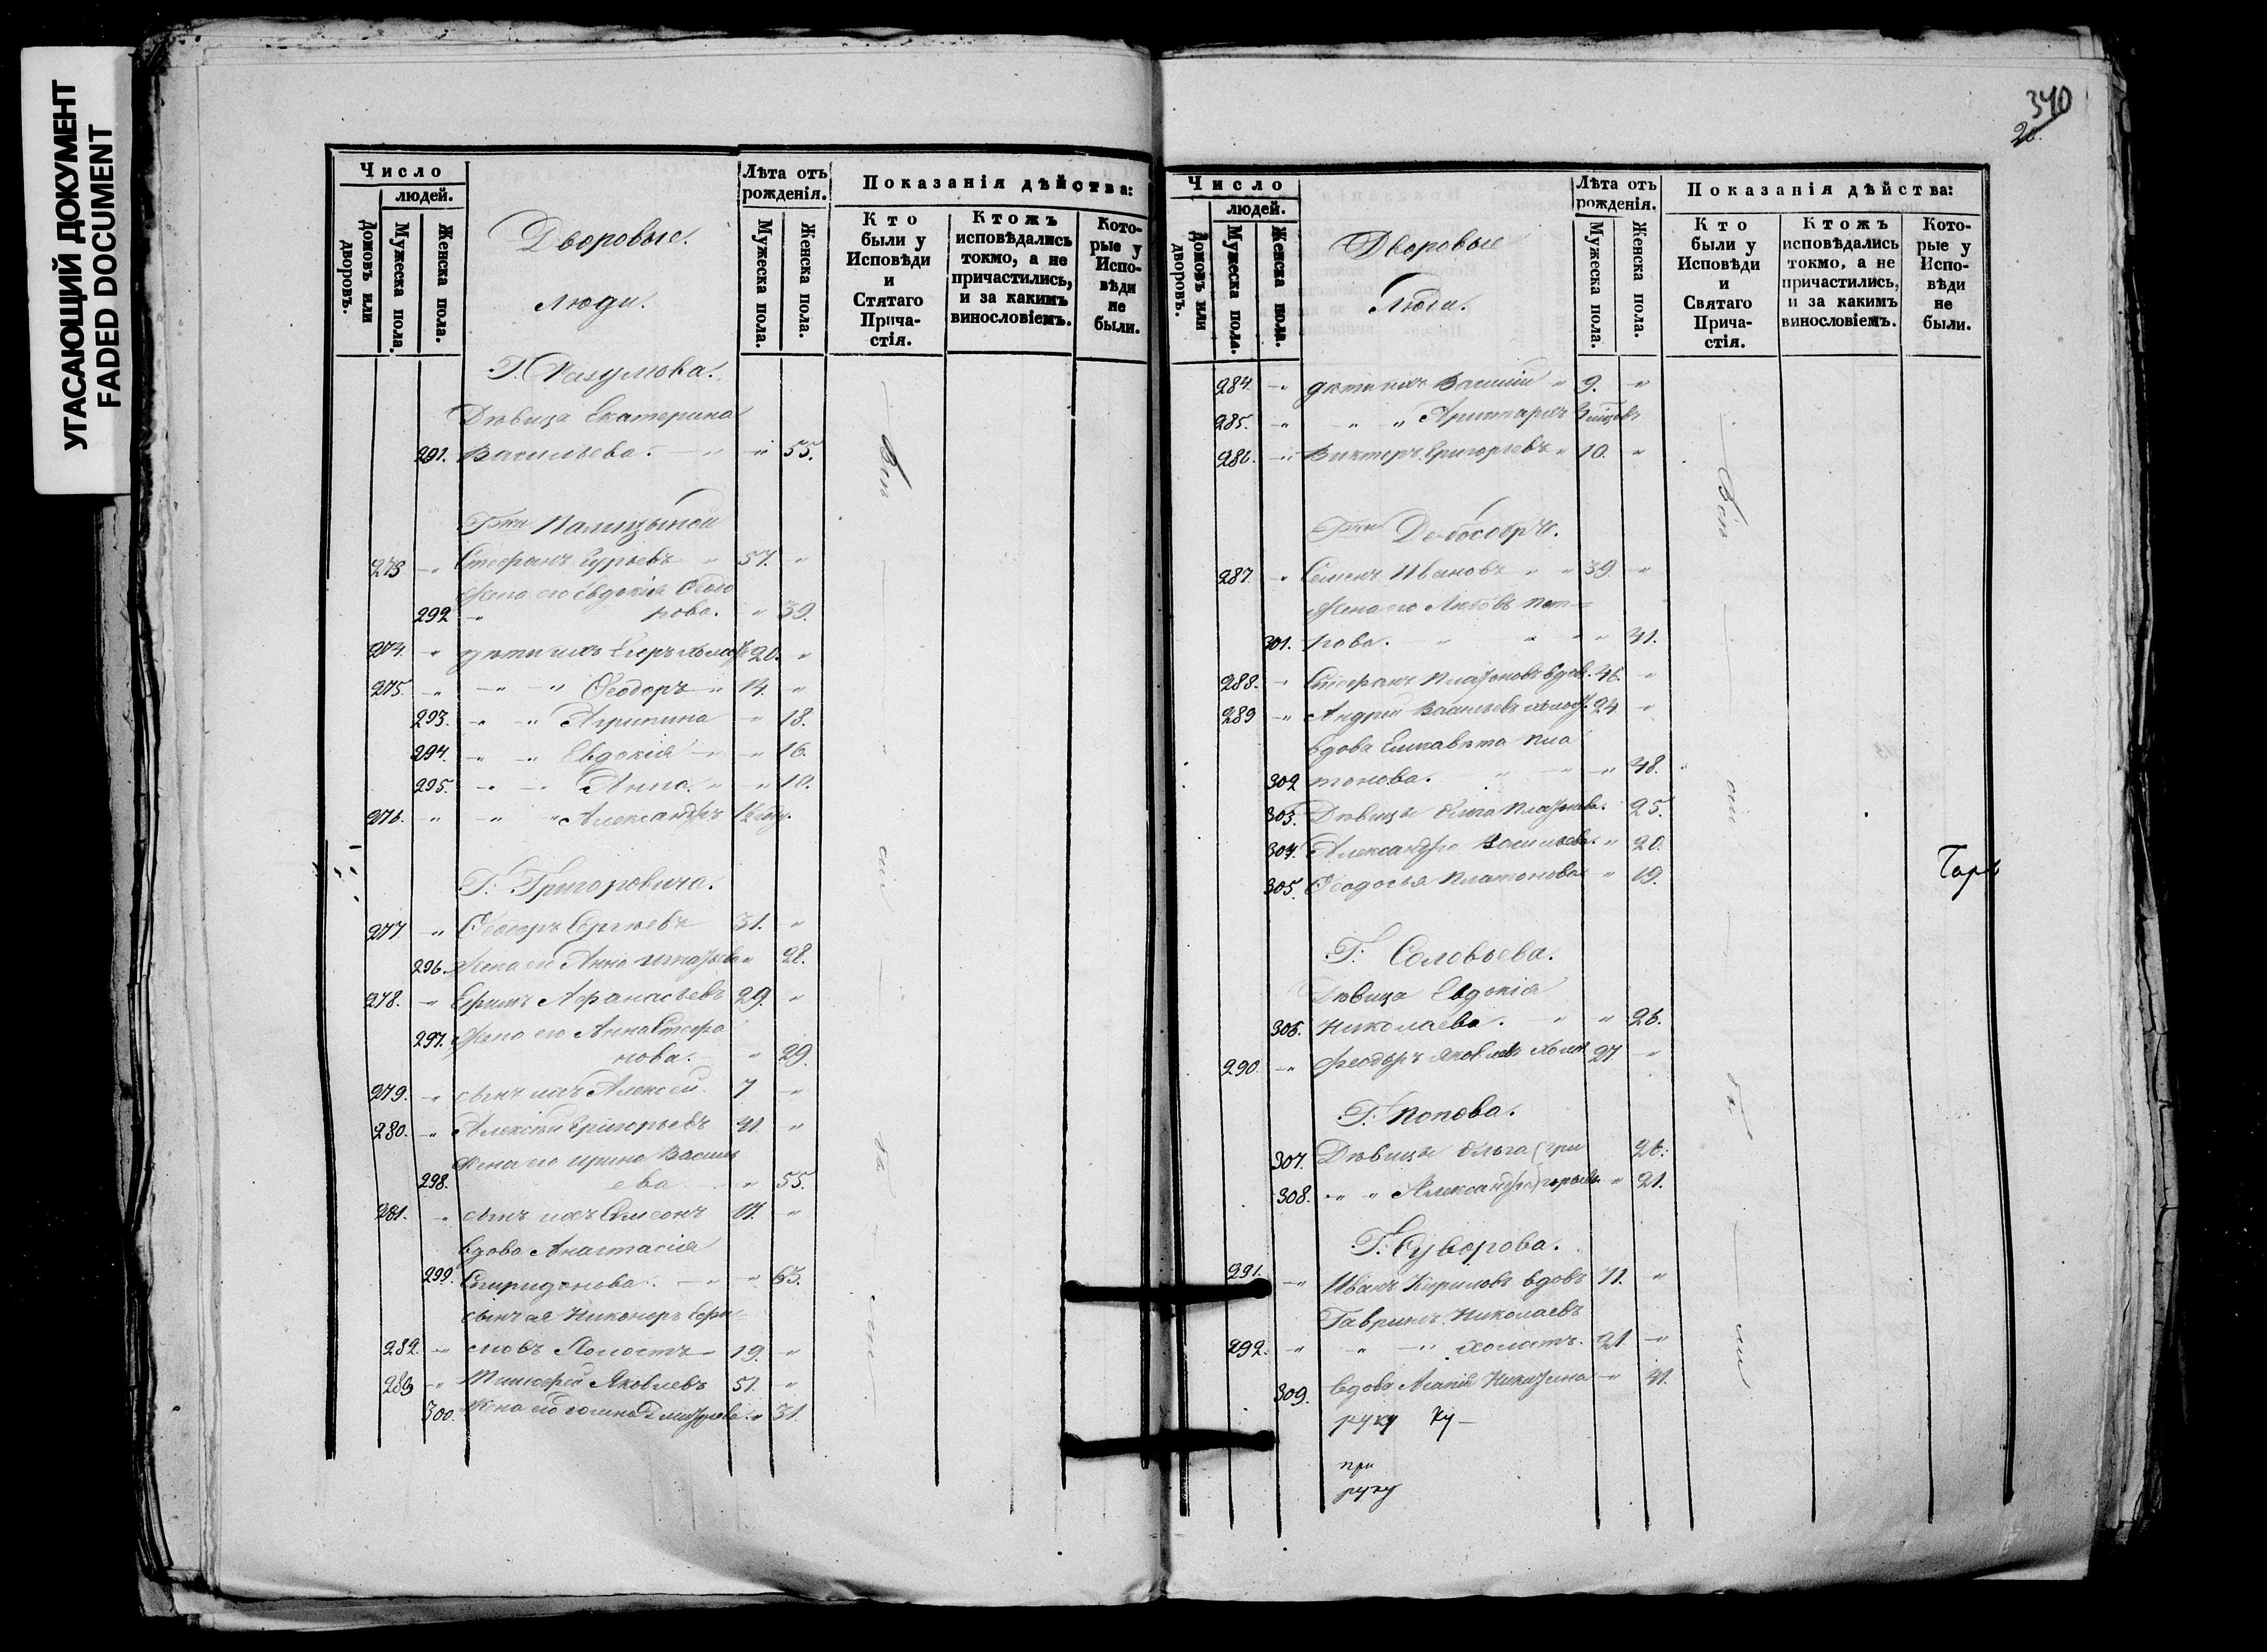 УГАСАЮЩИЙ ДОКУМЕНТ
FADED DOCUMENT
Число
людей.
Домовъ или дворовъ.
Мужеска пола.
Женска пола.
Дворовые.
Люди.
Лѣта отъ рожденія.
Мужеска пола.
Женска пола.
Показанія дѣйства:
Кто были у Исповѣди и Стятаго Прича-стія.
Ктожъ исповѣдались токмо, а не причастились, и за какимъ винословіемъ.
Кото-рые у Испо-вѣди не были.
Г. Разумова.
Дѣвица Екатерина
291. Васильева. " " 55.
Гжи Палицыной
273 " Стефанъ Гурьевъ " 57. "
Жена его Евдокія Ѳеодо
292 " рова. " 39.
274. " дѣти ихъ Егоръ холост 20. "
275. " " " Ѳеодоръ " 14. "
293. " " Агрипина " 18.
294. " " Евдокія " " 16.
295. " " Анна. " " 10.
276. " " " Александръ ½ году.
Г. Григоровича.
277 " Ѳеодоръ Сергѣевъ 31. "
296. Жена его Анна Игнатьева " 28.
278. " Ефимъ Афанасьевъ 29. "
297. Жена его Анна Стефа
нова. " 29.
279. " сынъ ихъ Алексей. 7 "
280. " Алексѣй Григорьевъ 41. "
Жена его Ирина Василь
298. ева " 55.
281. " сынъ ихъ Симеонъ "
вдова Анастасія
299. Спиридонова. " " 63.
сынъ ея Никоноръ Ефи=
282. " мовъ Холостъ 19. "
283 " Тимофей Яковлевъ 51. "
300. Жена его Дмитріева. " 31.
Всѣ
340
20.
Число
людей.
Домовъ или дворовъ.
Мужеска пола.
Женска пола.
Дворовые
Люди.
Лѣта отъ рожденія.
Мужеска пола.
Женска пола.
Показанія дѣйства:
Кто были у Исповѣди и Святаго Прича-стія.
Ктожъ исповѣдались токмо, а не причастились, и за какимъ винословіемъ.
Кото-рые у Испо-вѣди не были.
284. " дѣти ихъ Василій " 9. "
285. " " " Аристархъ
286. " Викторъ Григорьевъ " 10. "
Гжи
287. " Семенъ Ивановъ " " 39. "
Жена его Любовь Пет=
301. рова. " " " " 41.
288. " Стефанъ Платоновъ вдовъ. 46. "
289 " Андрей Васильевъ холост. 24 "
вдова Елисавета Пла
302 тонова. " " " 48.
303. Дѣвицы Ольга Платонова. 25.
304. Александра Васильева. " 20.
305. Ѳеодосья Платонова " 19.
Г. Соловьева.
Дѣвица Евдокія
306. Николаева. " " 26.
290. " Феодоръ Яковлевъ Холост 27 "
Г. Попова.
307. Дѣвицы Ольга (Гри 26.
308. " " Александра) горьевы " 21.
Г. Суворова.
291. " Иванъ Кириловъ вдовъ 71. "
Гаврилъ Николаевъ
292. " " " холостъ. 21. "
309. вдова Агапія Никитина " 41.
руку Ку-
при
руку
Всѣ